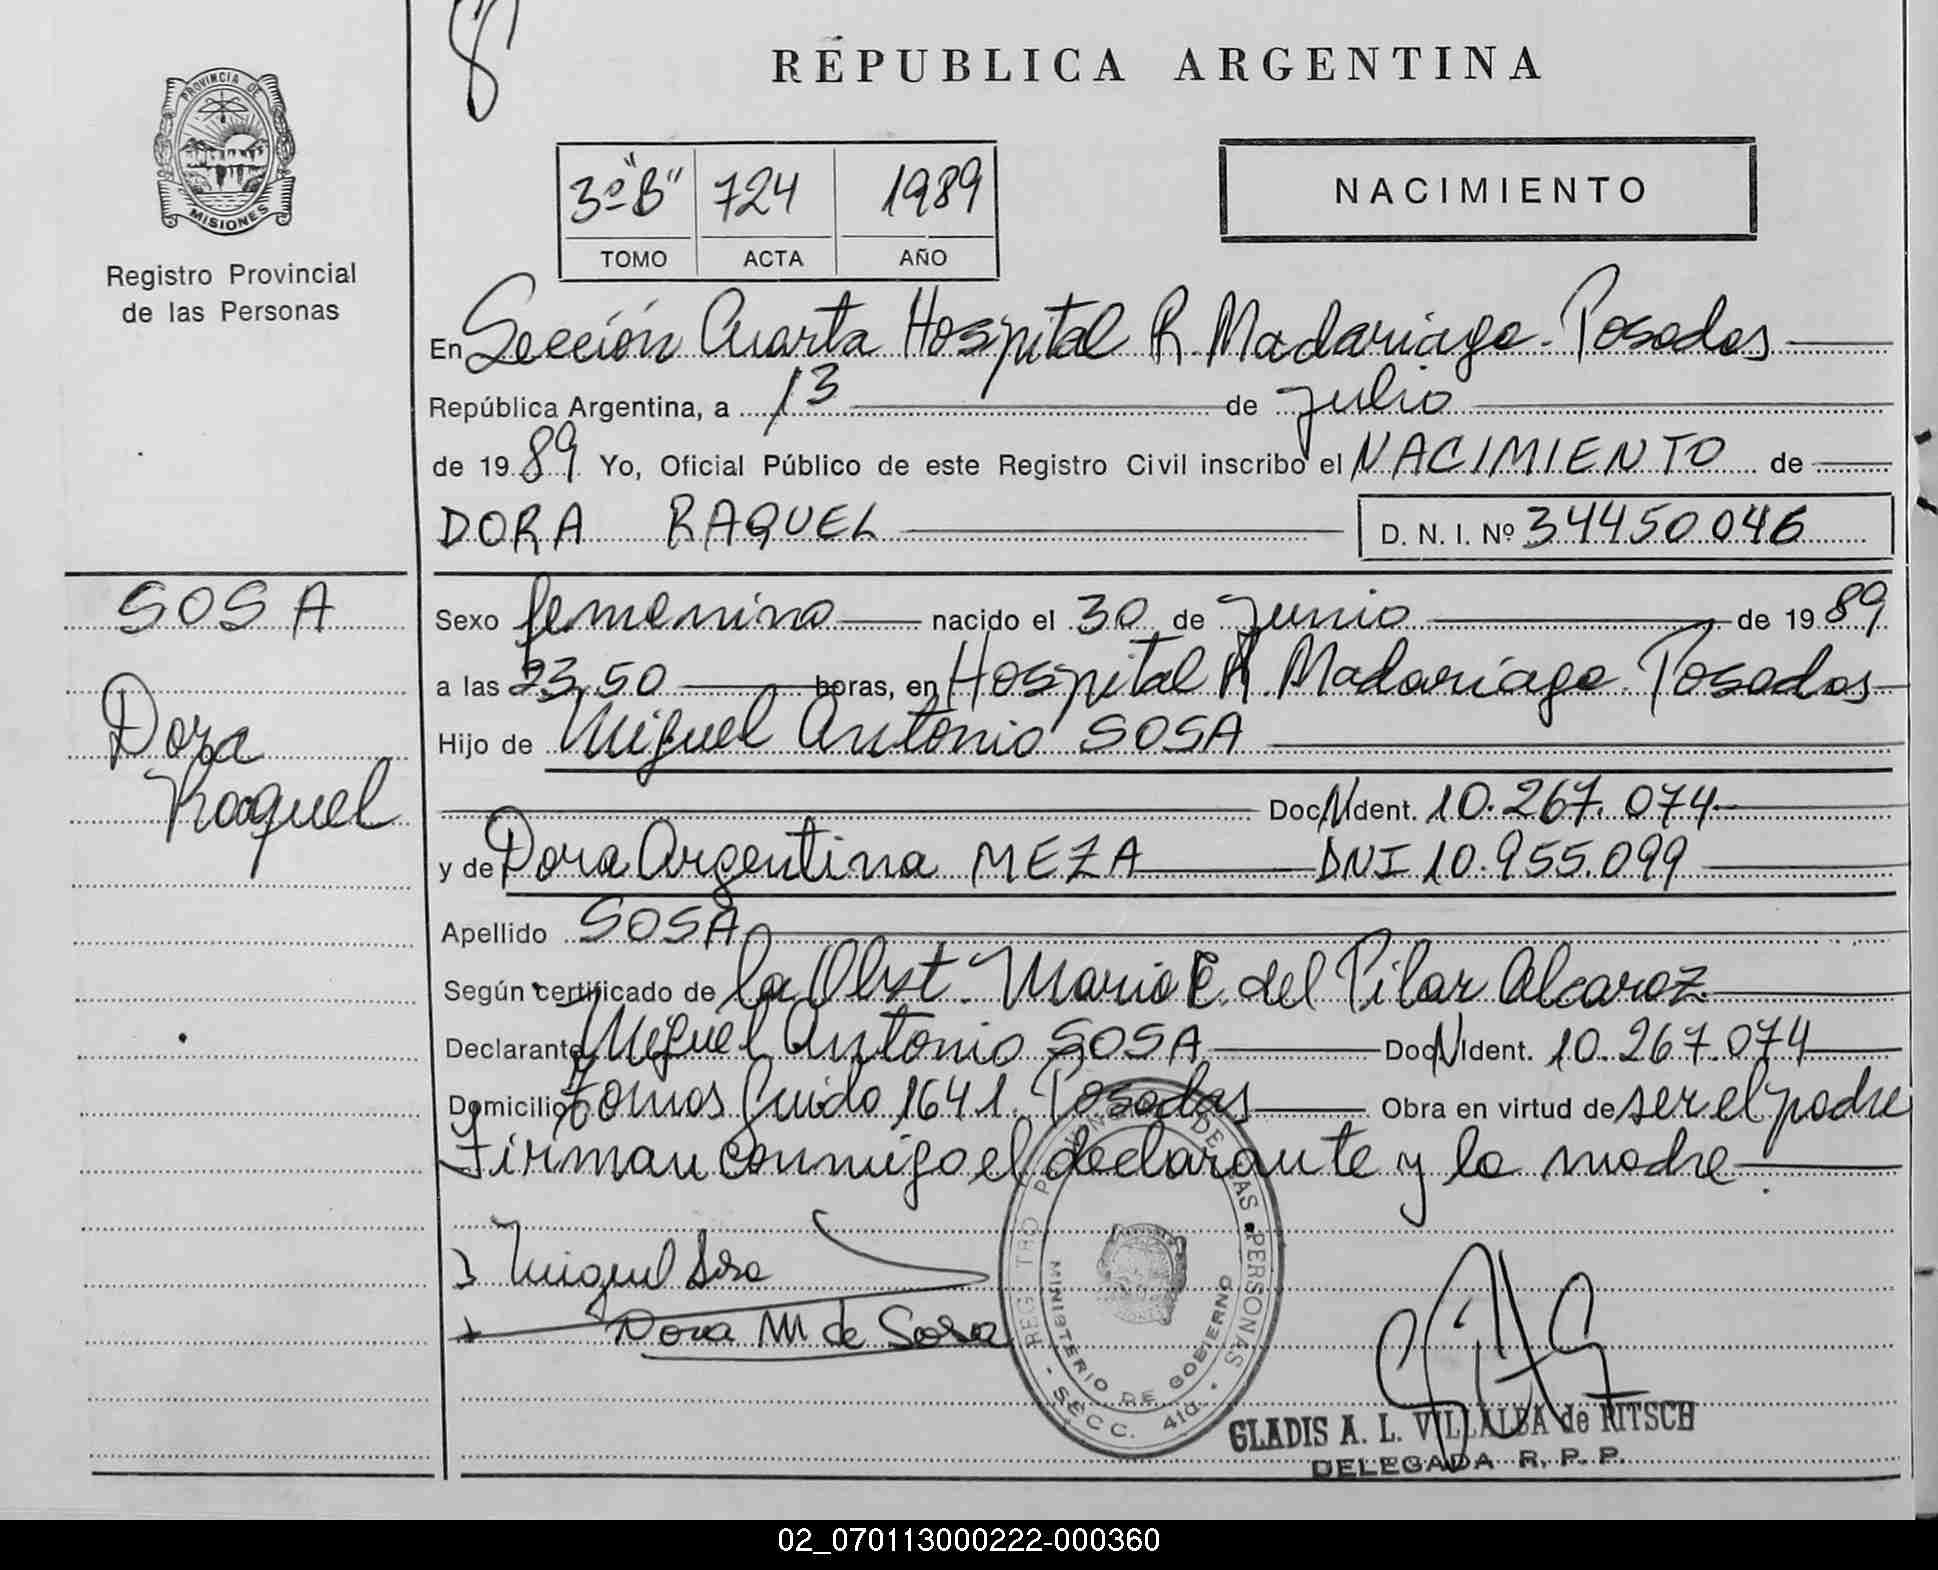 REPUBLICA ARGENTINA
PROVINCIA DE MISIONES
Registro Provincial
de las Personas
3º "B" 724 1989
TOMO ACTA AÑO
NACIMIENTO
En Sección Cuarta Hospital R Madariaga. Posadas
República Argentina, a 13 de julio
de 1989 Yo, Oficial Público de este Registro Civil inscribo el NACIMIENTO de
DORA RAQUEL D. N. I. Nº 34450046
SOSA
Dora
Raquel
Sexo femenino nacido el 30 de junio de 1989
a las 23,50 horas, en Hospital R. Madariaga. Posadas
Hijo de Miguel Antonio SOSA
Doc. Ident. 10.267.074
y de Dora Argentina MEZA DNI 10.955.099
Apellido SOSA
Según certificado de la Obst. Maria E. del Pilar Alcaroz
Declarante Miguel Antonio SOSA Doc Ident. 10.267.074
Domicilio Tomas Guido 1641. Posadas Obra en virtud de ser el padre
Firman conmigo el declarante y la madre
Miguel Sosa
Dora M de Sosa
REGISTRO PROVINCIAL DE LAS PERSONAS
MINISTERIO DE GOBIERNO
SECC. 4ta.
GLADIS A. L. VILLALBA de RITSCH
DELEGADA R. P. P.
02_070113000222-000360